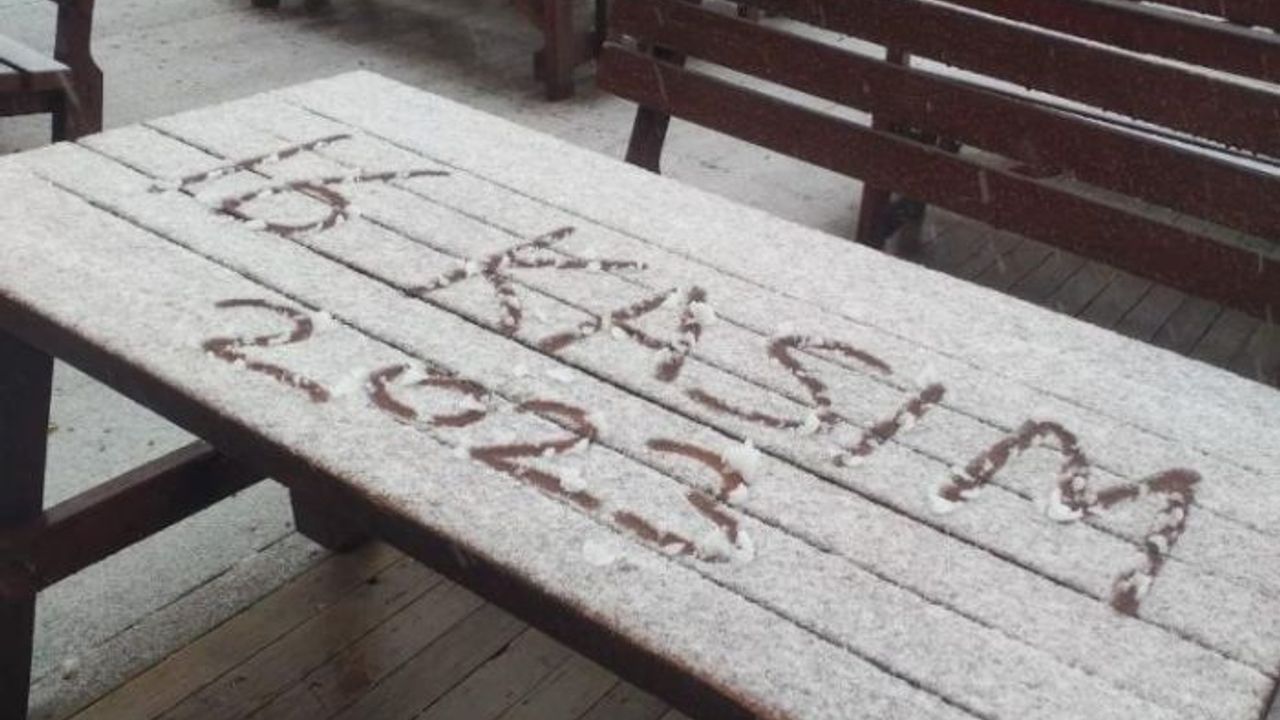 16 KASIM
2023